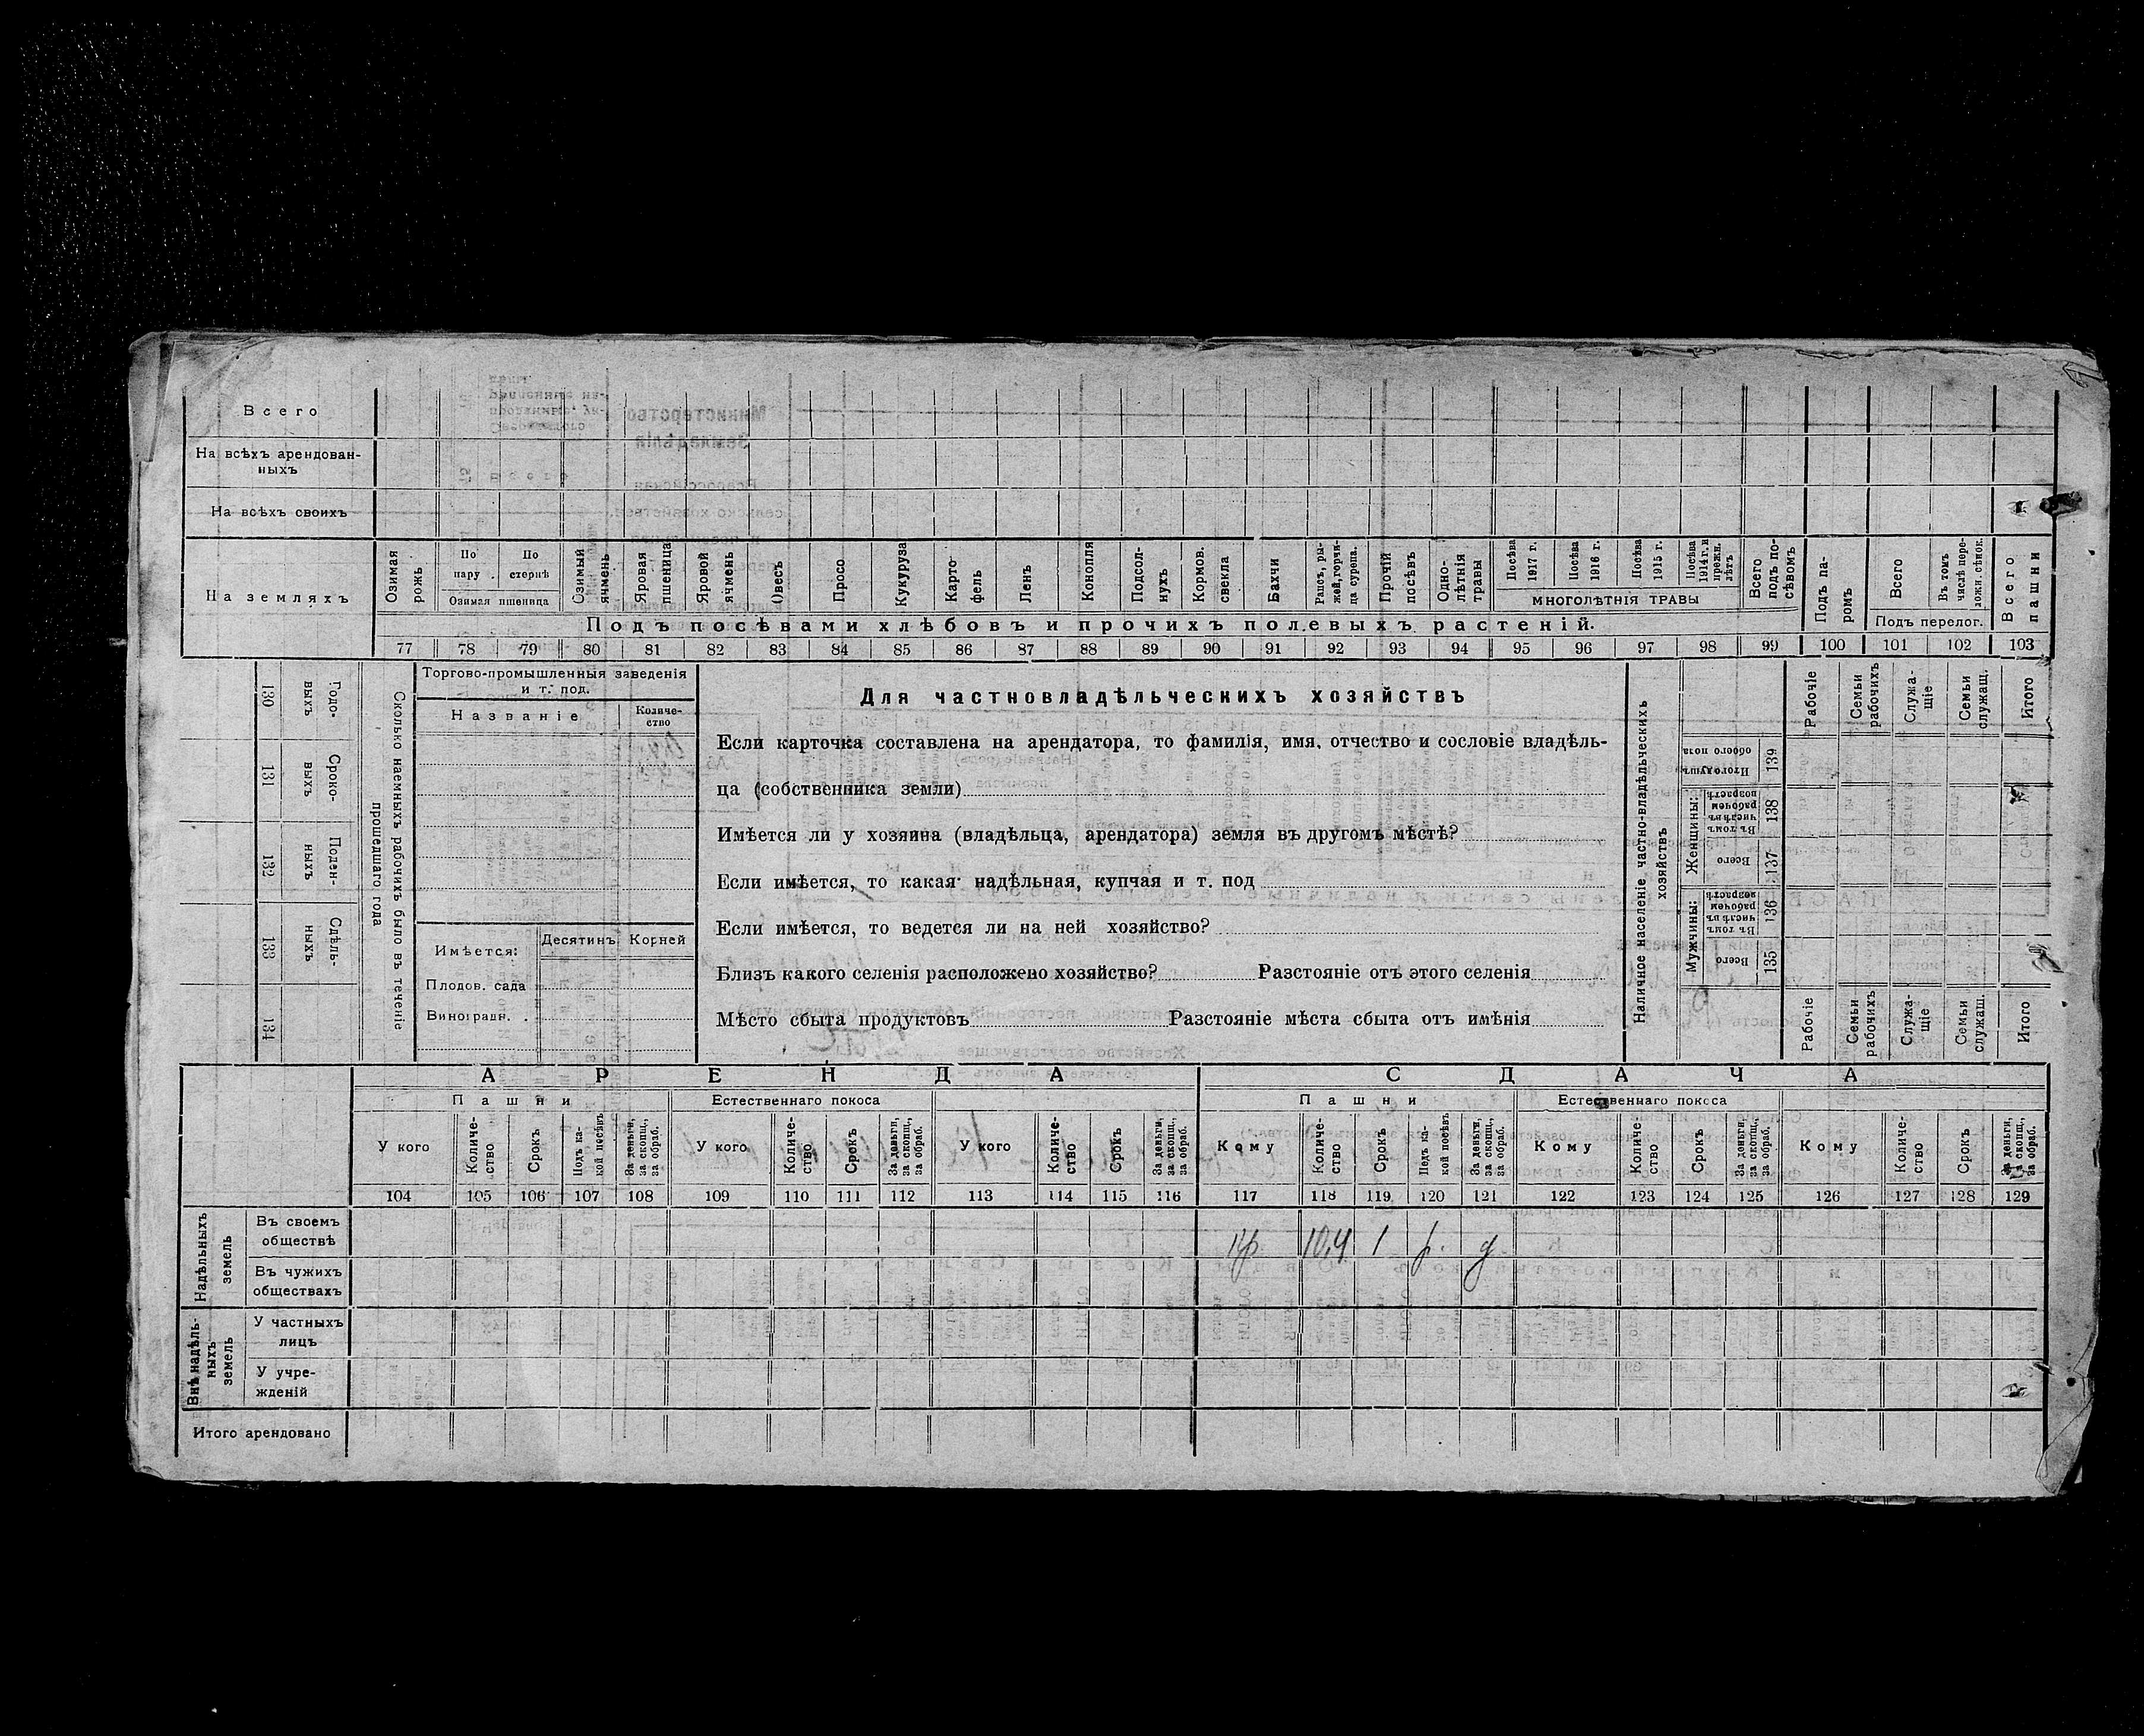 Всего
На всѣхъ арендован-
ныхъ
На всѣхъ своихъ
На земляхъ
Озимая рожь
По пару
По стернѣ
Озимая пшеница
Озимый ячмень
Яровая пшеница
Яровой ячмень
Овесъ
Просо
Кукуруза
Карто-
фель
Ленъ
Конопля
Подсол-
нухъ
Кормов. свекла
Бахчи
Рапсъ, ры-
жей, горчи-
ца сурепа.
Прочій посѣвъ
Одно-
лѣтнія травы
Посѣва 1917 г.
Посѣва 1916 г.
Посѣва 1915 г.
Посѣва 1914 г. и прежн. лѣтъ
многолѣтнія травы
Всего подъ по-
сѣвомъ
Подъ па-
ромъ
Всего
Въ томъ числѣ пере-
ложн. сѣнок.
Подъ перелог.
Всего пашни
Подъ посѣвами хлѣбовъ и прочихъ полевыхъ растеній.
77 78 79 80 81 82 83 84 85 86 87 88 89 90 91 92 93 94 95 96 97 98 99 100 101 102 103
130 Годо-
выхъ
131 Сроко-
выхъ
132 Поден-
ныхъ
133 Сдѣль-
ныхъ
134
Сколько наемныхъ рабочихъ было въ теченіе
прошедшаго года
Торгово-промышленныя заведенія
и т. под.
Названіе
Количе-
ство
Имѣется:
Десятинъ
Корней
Плодов. сада
Виноградн.
Для частновладѣльческихъ хозяйствъ
Если карточка составлена на арендатора, то фамилія, имя, отчество и сословіе владѣль-
ца (собственника земли)
Имѣется ли у хозяина (владѣльца, арендатора) земля въ другомъ мѣстѣ?
Если имѣется, то какая надѣльная, купчая и т. под
Если имѣется, то ведется ли на ней хозяйство?
Близъ какого селенія расположено хозяйство? Разстояніе отъ этого селенія
Мѣсто сбыта продуктовъ Разстояніе мѣста сбыта отъ имѣнія
Наличное населеніе частно-владѣльческихъ
хозяйствъ
Рабочіе
Семьи рабочихъ
Служа-
щіе
Семьи служащ.
Итого
Итого душъ обоего пола
139
Женщины:
Въ томъ числѣ въ рабочем возрастѣ
138
Всего
137
Мужчины:
Въ томъ числѣ въ рабочем возрастѣ
136
Всего
135
Рабочіе
Семьи рабочихъ
Служа-
щіе
Семьи служащ.
Итого
АРЕНДА
СДАЧА
Пашни
Естественнаго покоса
Пашни
Естественнаго покоса
У кого
Количе-
ство
Срокъ
Подъ ка-
кой посѣвъ
За деньги, за скопщ., за обраб.
У кого
Количе-
ство
Срокъ
За деньги, за скопщ., за обраб.
У кого
Количе-
ство
Срокъ
За деньги, за скопщ., за обраб.
Кому
Количе-
ство
Срокъ
Подъ ка-
кой посѣвъ
За деньги, за скопщ., за обраб.
Кому
Количе-
ство
Срокъ
За деньги, за скопщ., за обраб.
Кому
Количе-
ство
Срокъ
За деньги, за скопщ., за обраб.
104 105 106 107 108 109 110 111 112 113 114 115 116 117 118 119 120 121 122 123 124 125 126 127 128 129
Надѣльныхъ
земель
Въ своемъ
обществѣ
кр. 10,4 1 р. д
Въ чужихъ
обществахъ
Внѣ надѣль-
ныхъ
земель
У частныхъ
лицъ
У учре-
жденій
Итого арендовано